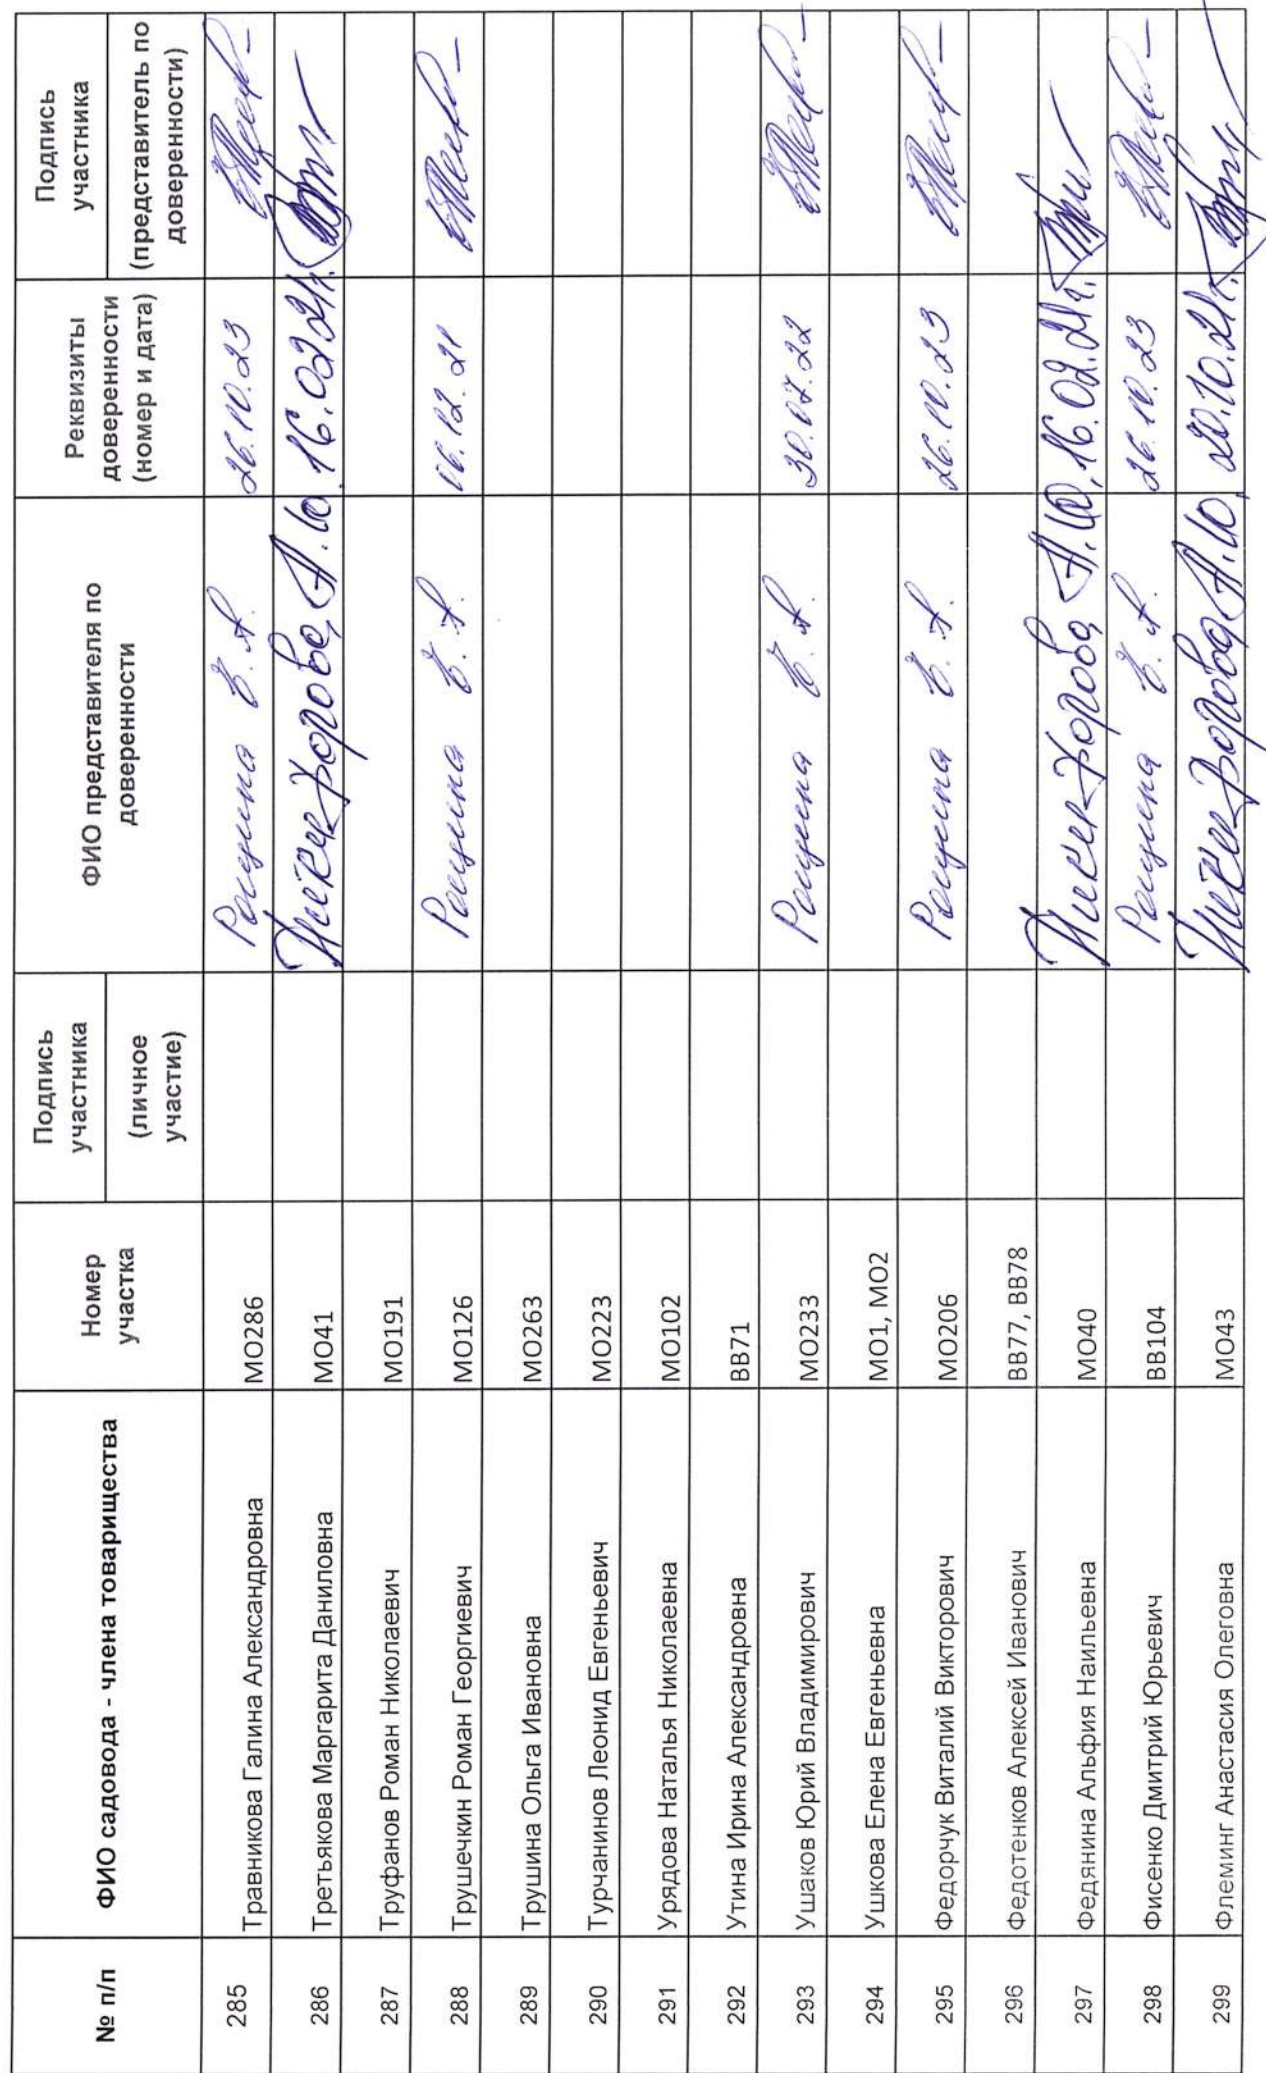 № п/п ФИО садовода - члена товарищества Номер участка Подпись участника (личное участие) ФИО представителя по доверенности Реквизиты доверенности (номер и дата) Подпись участника (представитель по доверенности)
285 Травникова Галина Александровна МО286 Рощина Е.А. 26.10.23
286 Третьякова Маргарита Даниловна МО41 Никифорова А.Ю. 16.02.21г.
287 Труфанов Роман Николаевич МО191
288 Трушечкин Роман Георгиевич МО126 Рощина Е.А. 06.12.21
289 Трушина Ольга Ивановна МО263
290 Турчанинов Леонид Евгеньевич МО223
291 Урядова Наталья Николаевна МО102
292 Утина Ирина Александровна ВВ71
293 Ушаков Юрий Владимирович МО233 Рощина Е.А. 30.07.22
294 Ушкова Елена Евгеньевна МО1, МО2
295 Федорчук Виталий Викторович МО206 Рощина Е.А. 26.10.23
296 Федотенков Алексей Иванович ВВ77, ВВ78
297 Федянина Альфия Наильевна МО40 Никифорова А.Ю. 16.02.21г.
298 Фисенко Дмитрий Юрьевич ВВ104 Рощина Е.А. 26.10.23
299 Флеминг Анастасия Олеговна МО43 Никифорова А.Ю. 20.10.21г.